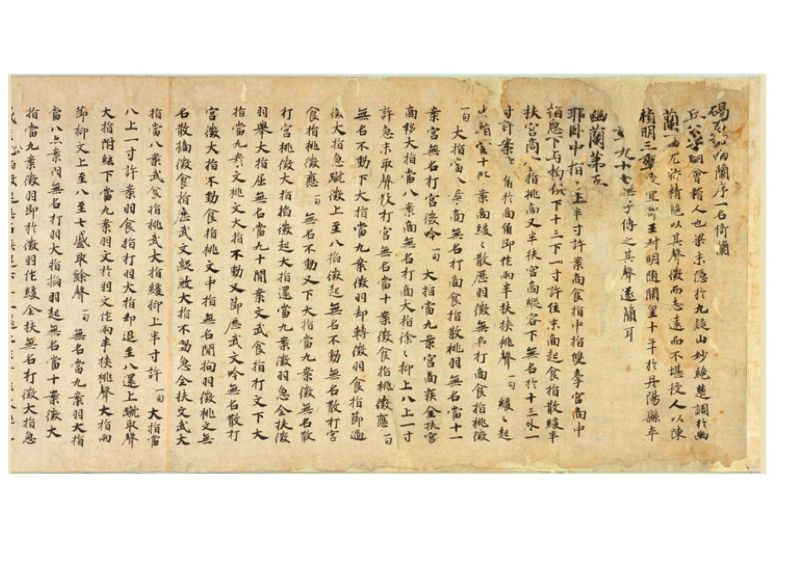 碣石調幽蘭序一名倚蘭
丘公字明會稽人也梁末隱於九疑山妙絕楚調於幽
蘭一曲尤特精絕以其聲微而志遠而不堪授人以陳
禎明三年授宜都王叔明隨開皇十年於丹陽縣卒
年九十七無子傳之其聲遂簡耳
幽蘭第五
耶臥中指上半寸許案商食指中指雙牽宮商中
指急下与拘俱下十三下一寸許住末商起食指散緩半
扶宮商食指挑商又半扶宮商縱容下無名於十三外一
寸許案商角於商角即作兩半扶挾挑聲一句緩〻起
無名當十案商緩〻散歷羽徵無名打商食指挑徵
一句大指當八案商無名打商食指散挑羽無名當十一
案宮無名打宮徵吟一句大指當九案宮商疾全扶宮
商移大指當八案商無名打商大指徐〻抑上八上一寸
許急末取聲散打宮無名當十案徵食指挑徵應一句
無名不動下大指當九案徵羽却轉徵羽食指節過
徐大指急蹴徵上至八拍徵起無名不動無名散打宮
食指挑徵應一句無名不動又下大指當九案徵無名散
打宮徵大指拍徵起大指還當九案徵羽急全扶徵
羽舉大指屈無名當九十間案文武食指打文下大
指當九案文挑文大指不動又節歷武文吟無名散打
宮徵大指不動食指挑文中指無名間拘羽徵挑文無
名散摘徵食指歷武文蹤歇大指不動急全扶文武大
指當八案武食指挑武大指緩抑上半寸許一句大指當
八上一寸許案羽食指打羽大指却退至八還上蹴取聲
大指附絃下當九案羽文於羽文作兩半扶挾挑聲大指兩
節抑文上至八至七盛取餘聲一句無名當九案羽大指
當八案間無名打羽大指搯羽起無名當十案徵大
指當九案徵羽即於徵羽作緩全扶無名打徵大指急